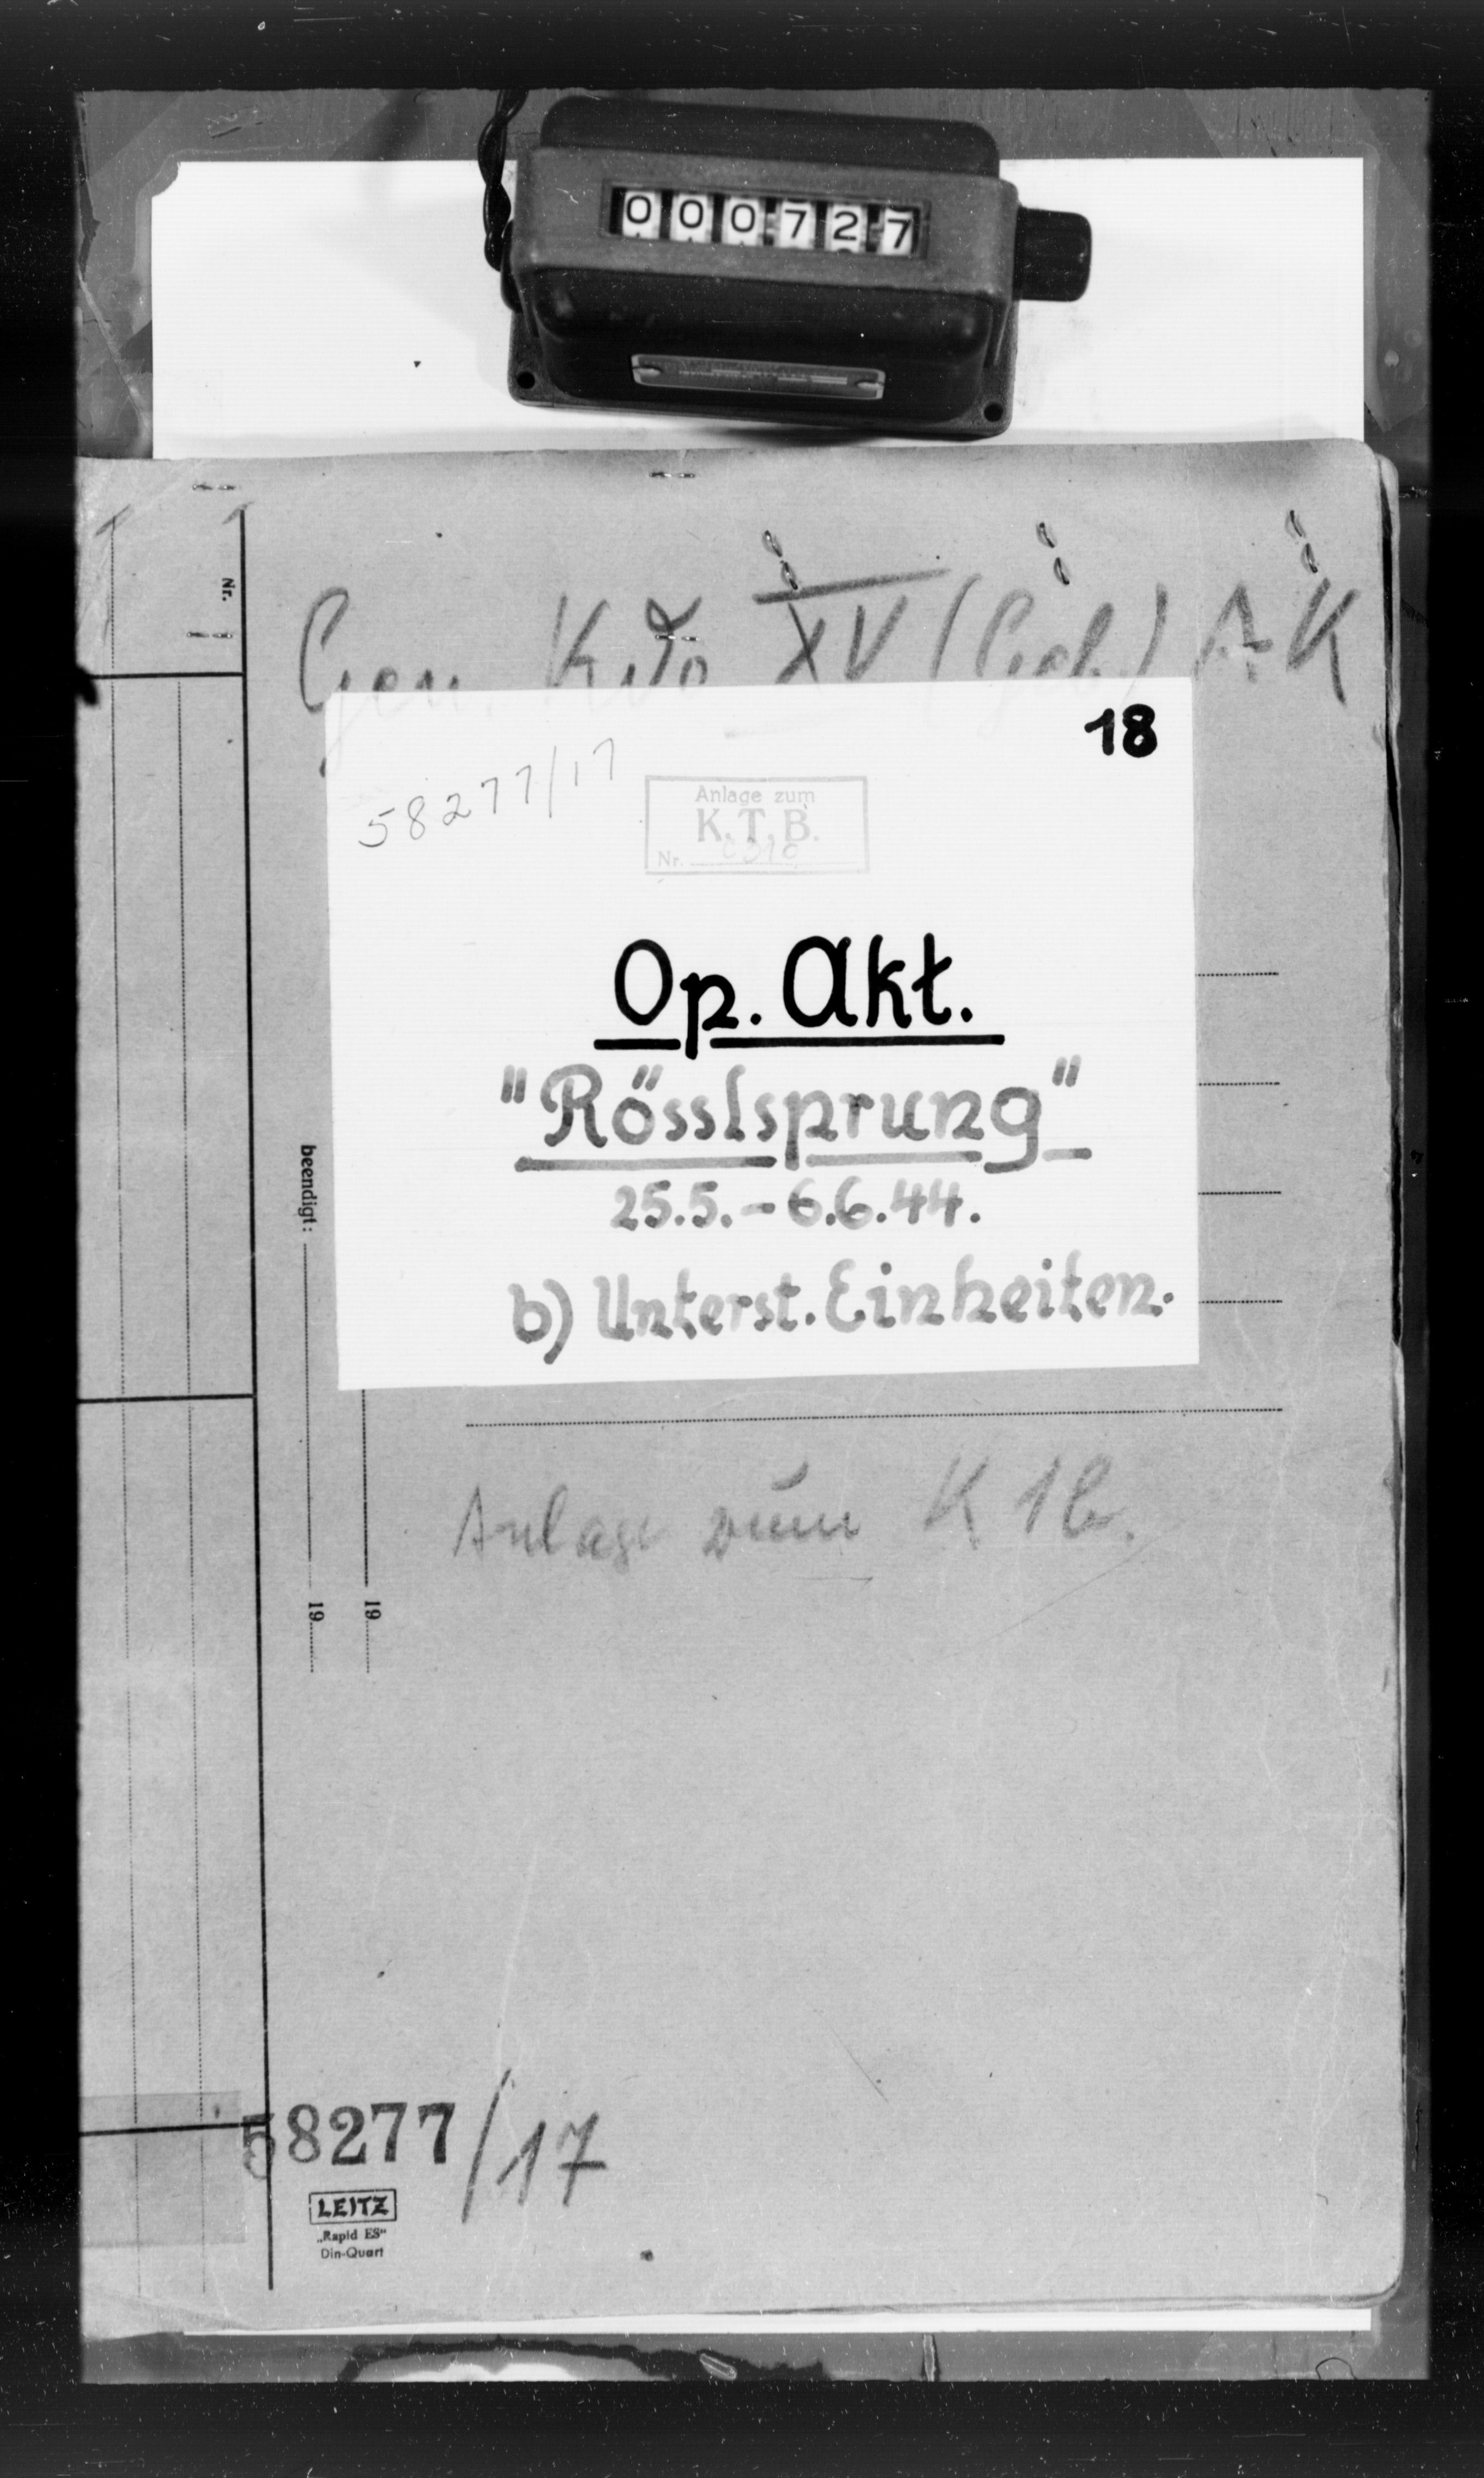 000727
Nr.
Gen. Kdo XV (Geb.) A.K
18
58277/17
Anlage zum
K.T.B.
Nr.
Op. Akt.
"Rösslsprung"
25.5.-6.6.44.
b) Unterst. Einheiten.
beendigt:
19
19
Anlage zum K
58277/17
LEITZ
„Rapid ES"
Din-Quart